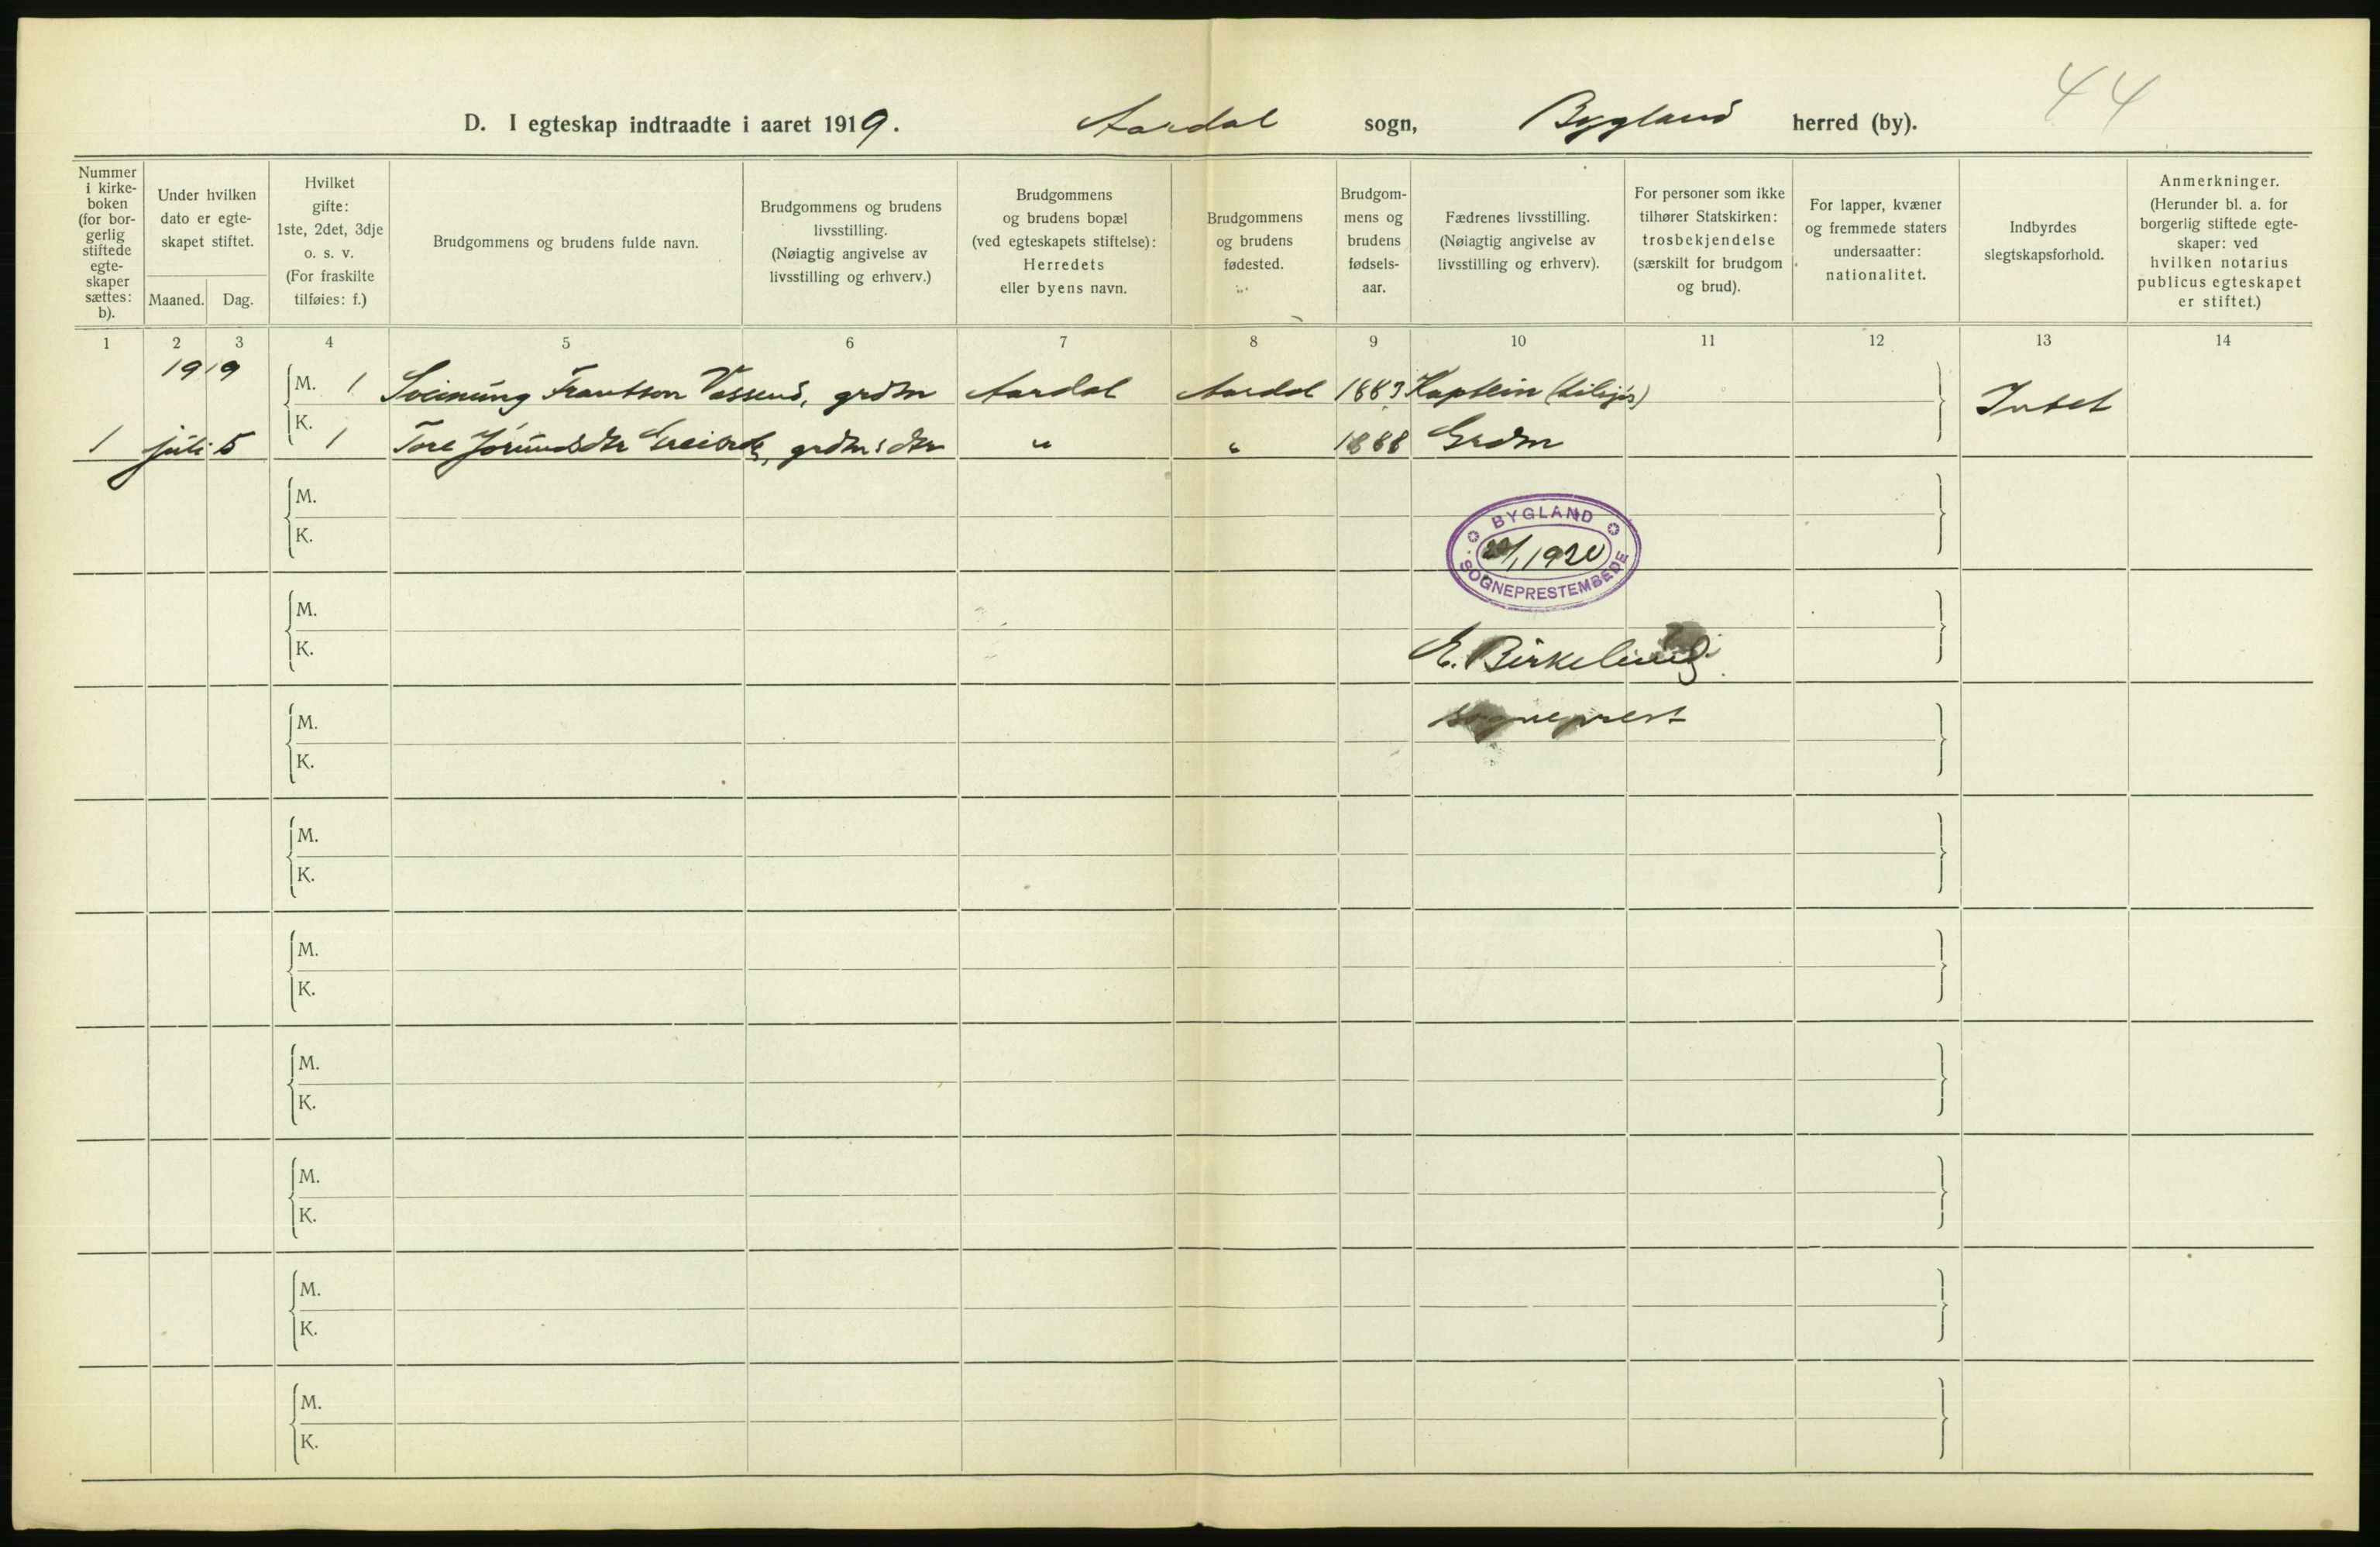 44
D. I egteskap indtraadte i aaret 1919. Aardal sogn, Bygland herred (by).
Nummer i kirke-boken (for bor-gerlig stiftede egte-skaper sættes: b).
Under hvilken dato er egte-skapet stiftet.
Maaned. Dag.
Hvilket gifte: 1ste, 2det, 3dje o. s. v. (For fraskilte tilføies: f.)
Brudgommens og brudens fulde navn.
Brudgommens og brudens livsstilling. (Nøiagtig angivelse av livsstilling og erhverv.)
Brudgommens og brudens bopæl (ved egteskapets stiftelse): Herredets eller byens navn.
Brudgommens og brudens fødested.
Brudgom-mens og brudens fødsels-aar.
Fædrenes livsstilling. (Nøiagtig angivelse av livsstilling og erhverv).
For personer som ikke tilhører Statskirken: trosbekjendelse (særskilt for brudgom og brud).
For lapper, kvæner og fremmede staters undersaatter: nationalitet.
Indbyrdes slegtskapsforhold.
Anmerkninger. (Herunder bl. a. for borgerlig stiftede egte-skaper: ved hvilken notarius publicus egteskapet er stiftet.)
1 2 3 4 5 6 7 8 9 10 11 12 13 14
1919
M. 1 Sveinung Frantson Vassend, grdm Aardal Aardal 1883 Kaptein Intet
K.
1 juli 5 1 Tore Jorundsdtr grdm s dtr " " 1888 Grdm
M.
K.
BYGLAND
1920
SOGNEPRESTEMBEDE
M.
K.
E. Birkelund
M.
sogneprest
K.
M.
K.
M.
K.
M.
K.
M.
K.
M.
K.
M.
K.